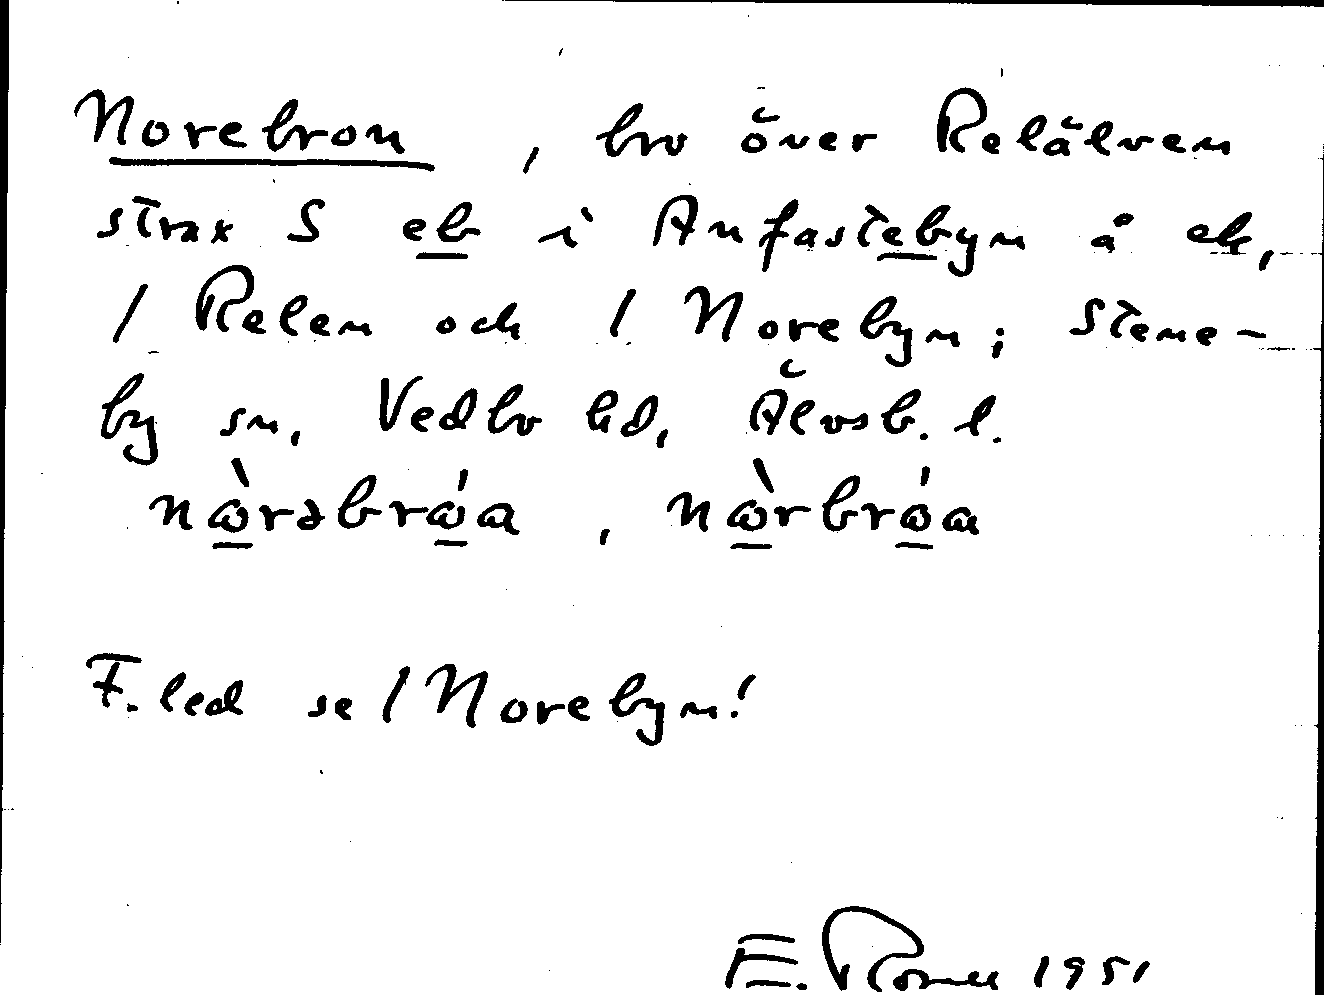 Norebron, bro över Relälven
strax S eb i Anfastebyn å ek,
/ Relen och / Norebyn; Stene-
by sn, Vedbo hd, Älvsb. l.
nὼrəbrώa, nὼrbrώa
F. led se / Norebyn!
E. 1951